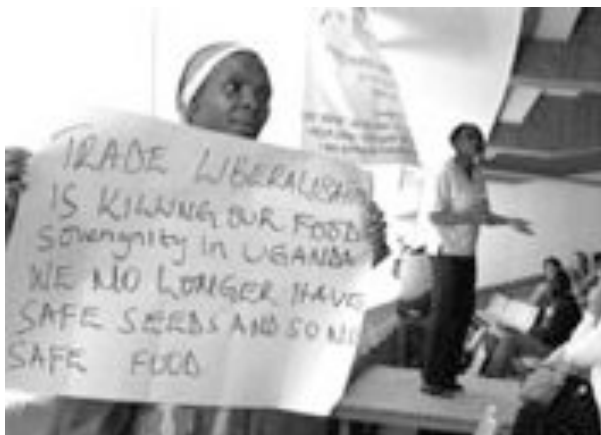 TRADE LIBERALISATION
IS KILLING OUR FOOD
Soverignity in UGANDA
WE NO LONGER HAVE
SAFE SEEDS AND SO NO
SAFE FOOD